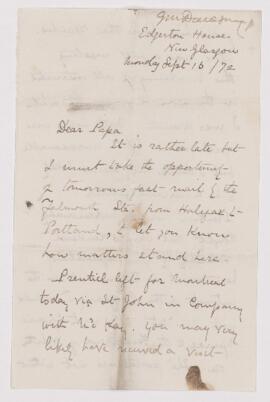 Edgerton House
New Glasgow
Monday Sept 16/72
Dear Papa
It is rather late but
I must take the opportunity
of tomorrows fast mail & the
Falmouth Str. from Halifax to
Portland, to let you know
how matters stand here.
Prentice left for Montreal
today via St John in Company
with McKay. You may very
likely have received a visit